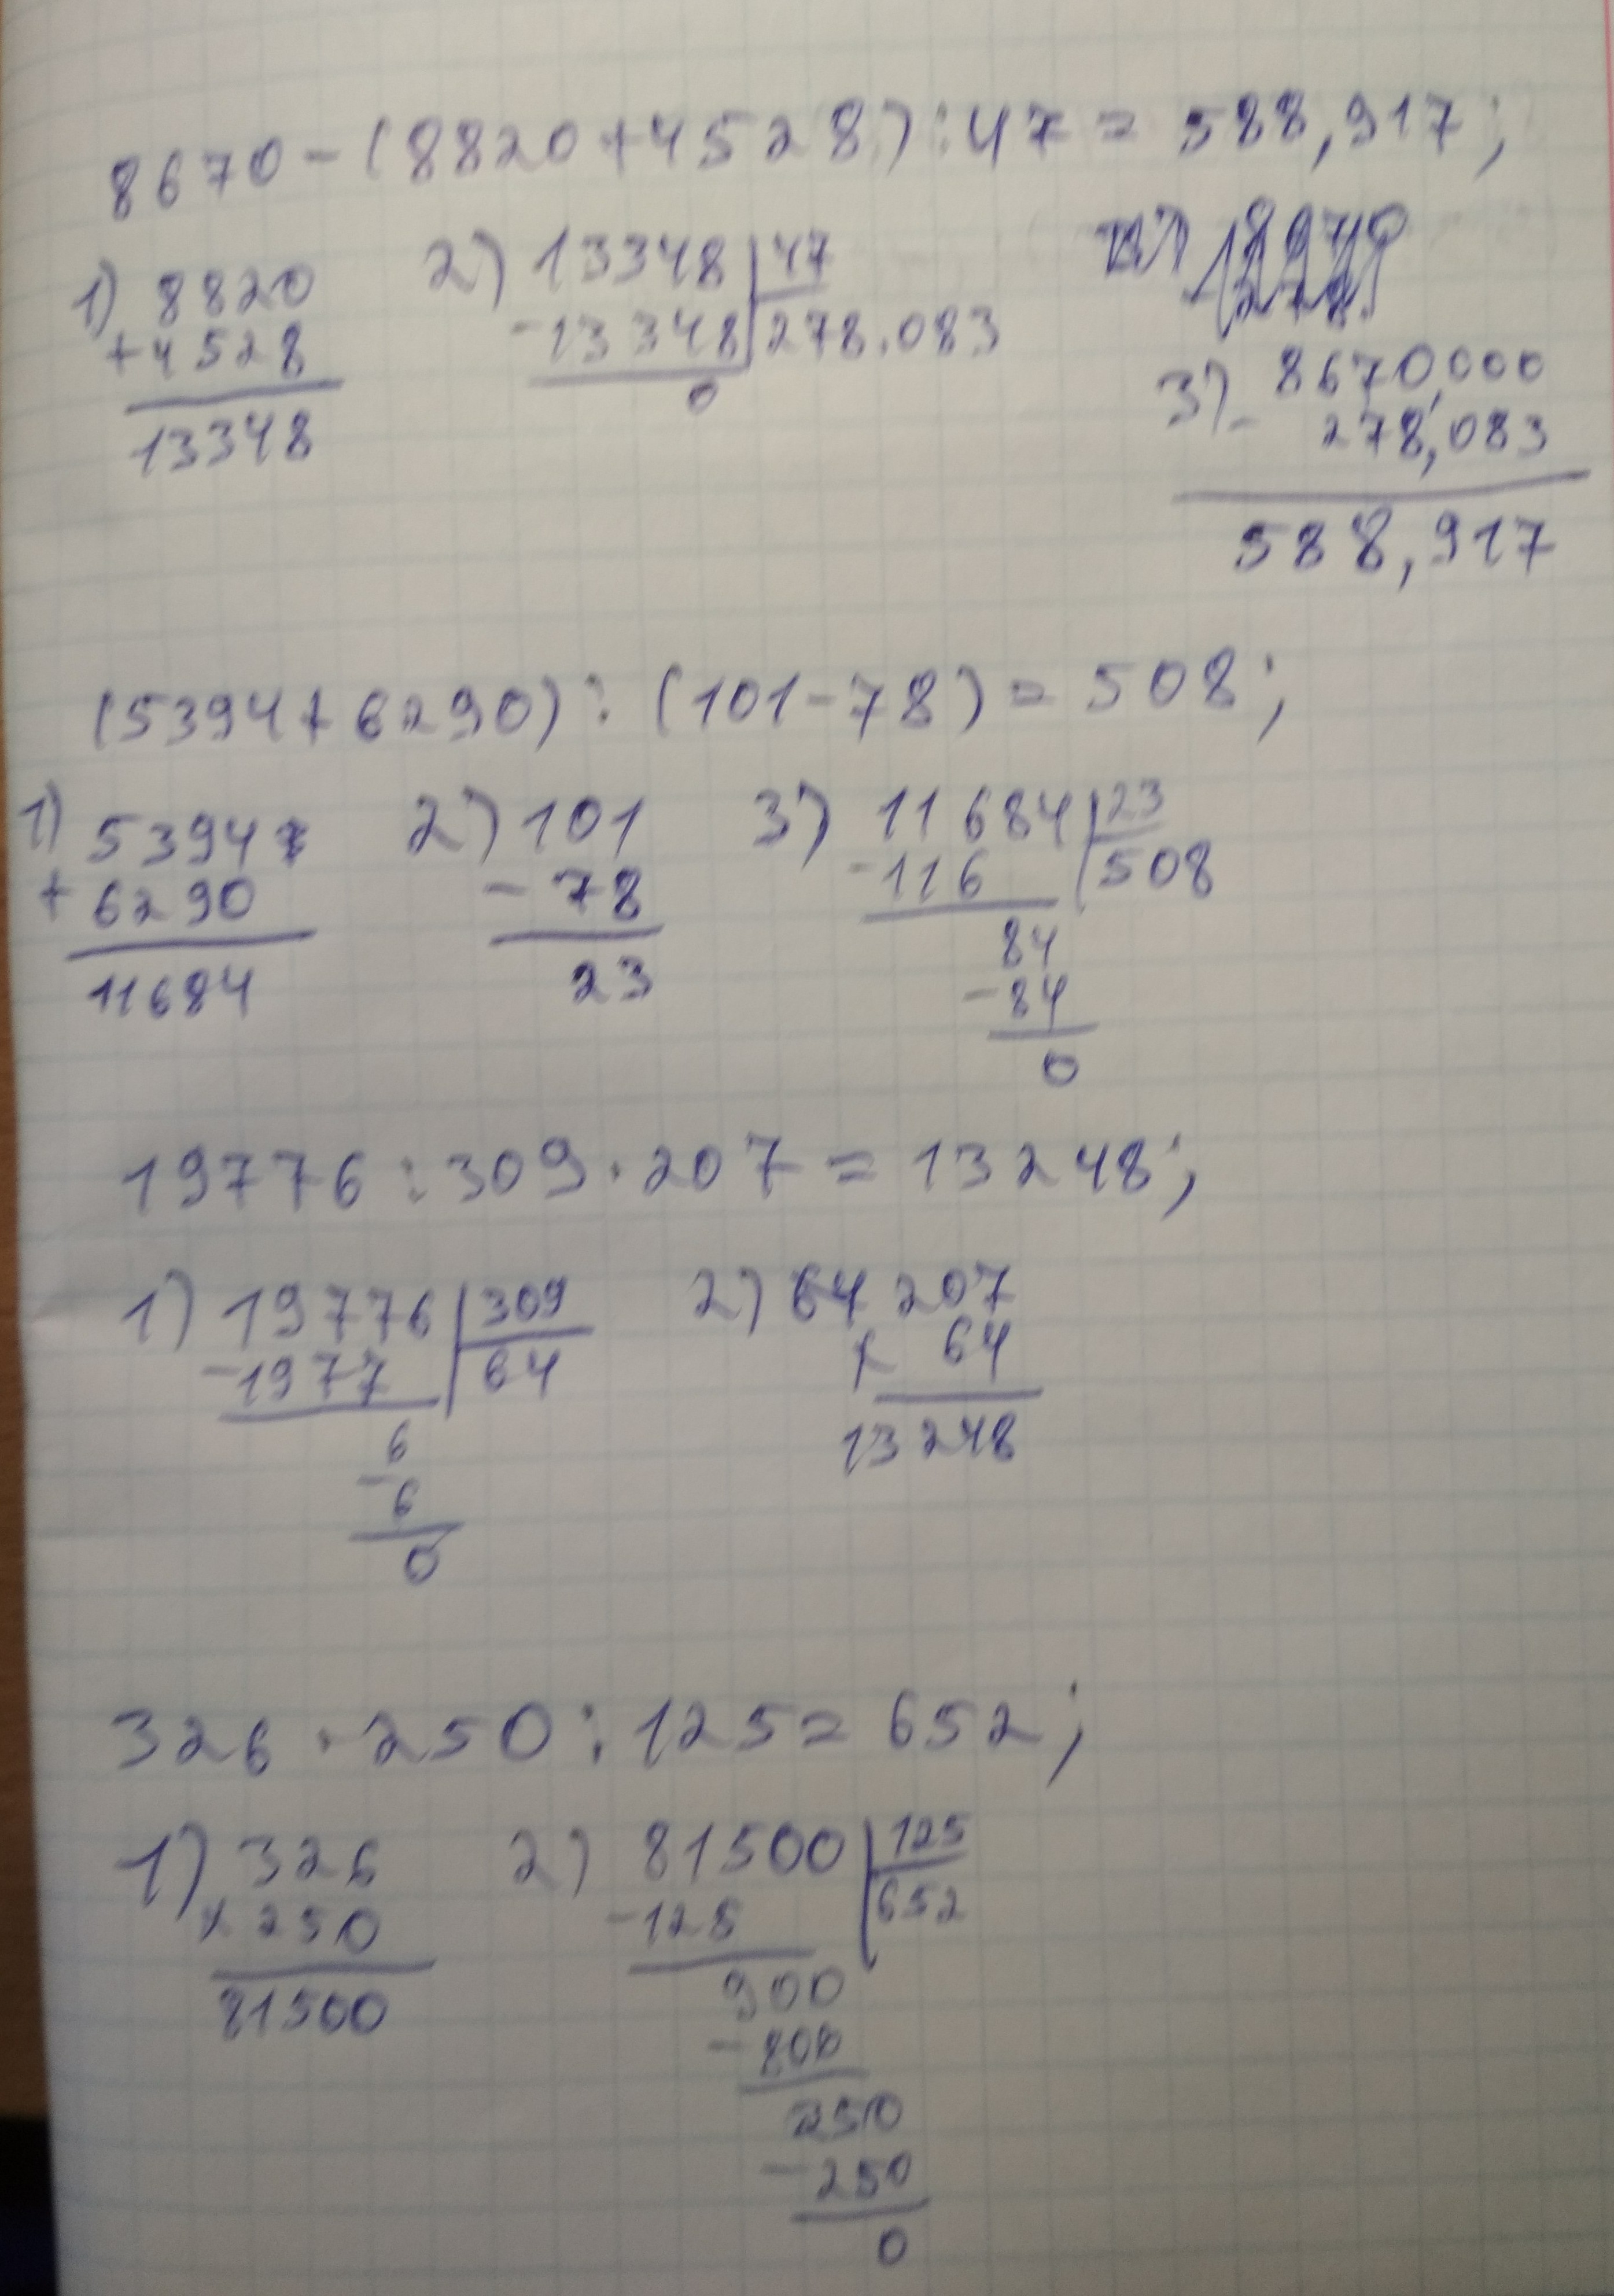 8670-(8820+4528):47=588,917;
1) 8820 2) 13348 47
+4528 -13348 278.083
13348 0
3) 8670,000
- 278,083
588,917
(5394+6290):(101-78)=508;
1) 5394 2) 101 3) 11684 23
+ 6290 - 78 -116 508
11684 23 84
-84
0
19776:309·207=13248;
1) 19776 309 2) 64 207
-1977 64 x 64
6 13248
-6
0
326·250:125=652;
1) 326 2) 81500 125
x 250 -125 652
81500 900
-800
250
-250
0